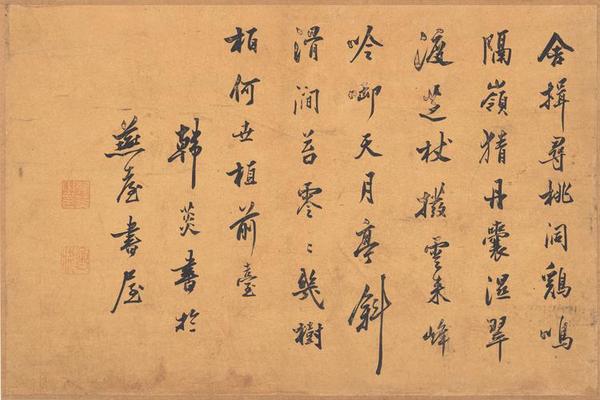 舍楫尋桃洞鷄鳴
隔嶺猜丹囊濕翠
渡芝杖撥雲來峰
吟啣天月亭斜
滑澗苔零〻幾樹
栢何世植前臺
韓菼書於
燕臺書屋